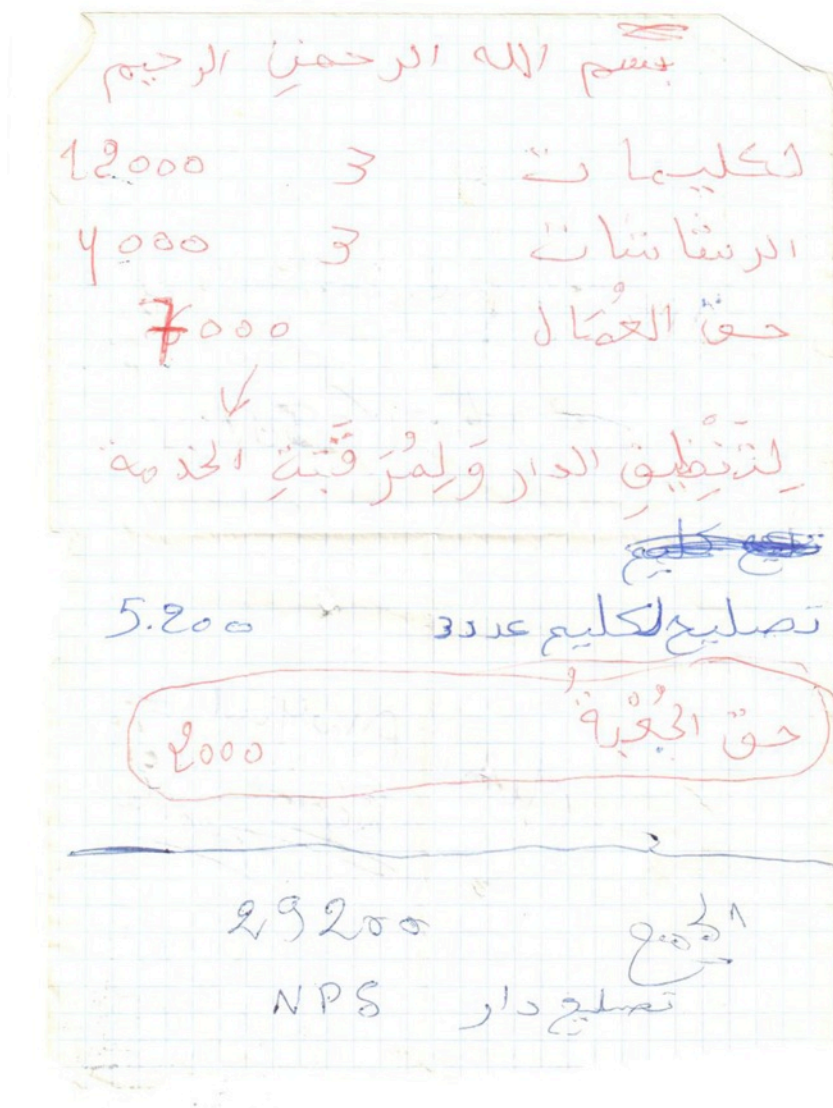 بسم الله الرحمن الرحيم
لكليمات 3 12000
الرشاشات 3 4000
حق العُمَال 7000
لِتَنْظِيقِ الدار وَلِمُرَقَبَتِةِ الخذمة
تصليح لكليم عدد 3 5.200
حق الجُعْبَةُ 2000
الجمع 29200
تصليح دار NPS